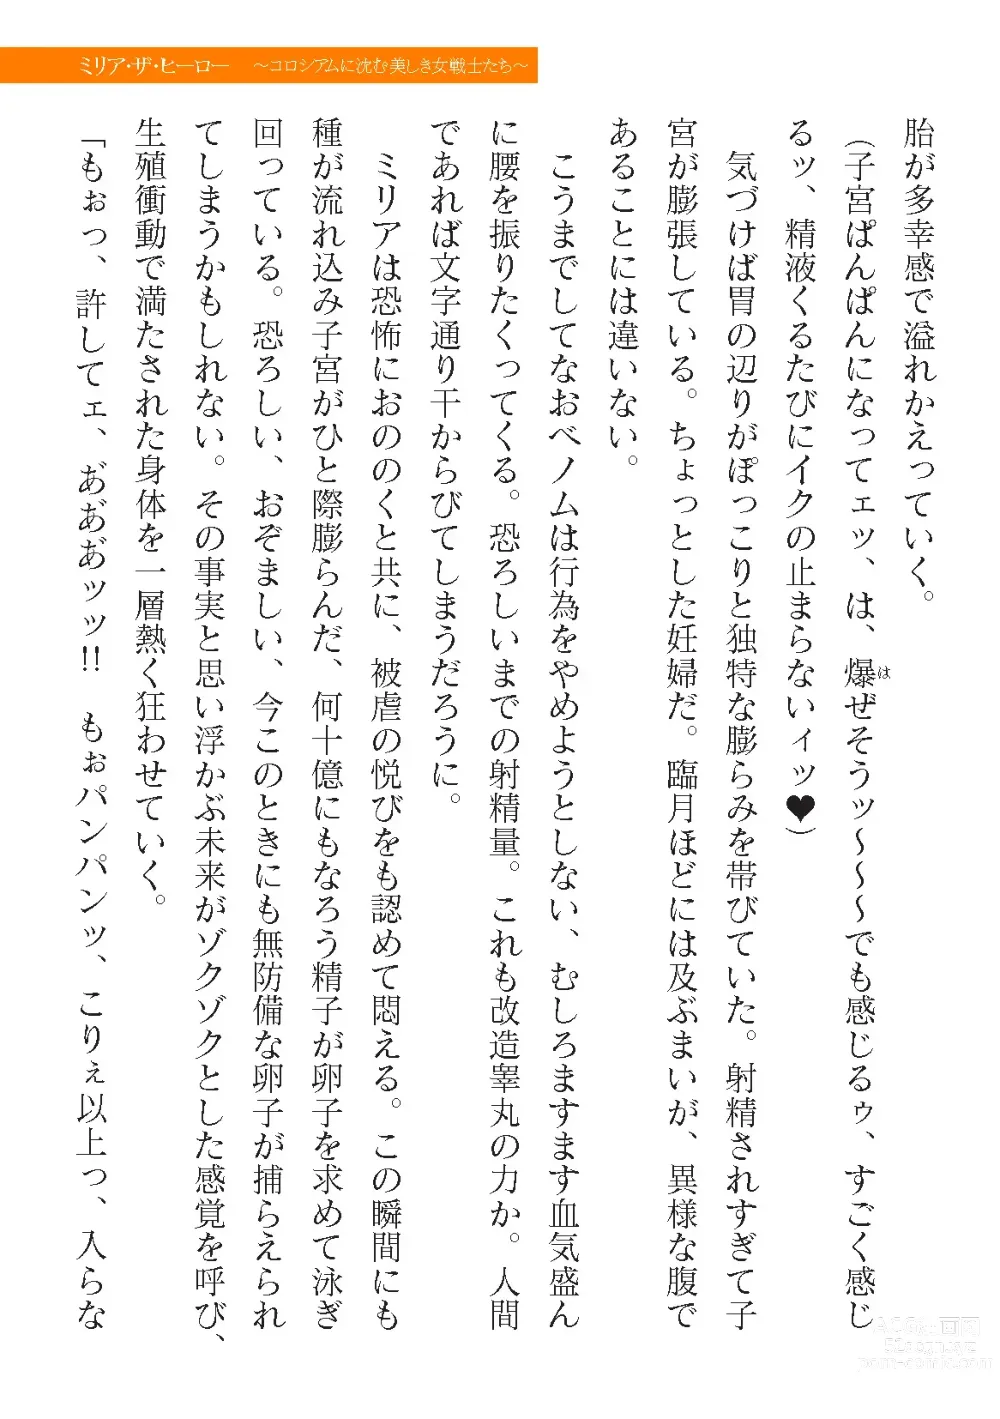 ミリア・ザ・ヒーロー　～コロシアムに沈む美しき女戦士たち～
胎が多幸感で溢れかえっていく。
（子宮ぱんぱんになってェッ、は、爆ぜそうッ～～～でも感じるゥ、すごく感じ
るッ、精液くるたびにイクの止まらないィッ♥）
　気づけば胃の辺りがぽっこりと独特な膨らみを帯びていた。射精されすぎて子
宮が膨張している。ちょっとした妊婦だ。臨月ほどには及ぶまいが、異様な腹で
あることには違いない。
　こうまでしてなおベノムは行為をやめようとしない、むしろますます血気盛ん
に腰を振りたくってくる。恐ろしいまでの射精量。これも改造睾丸の力か。人間
であれば文字通り干からびてしまうだろうに。
　ミリアは恐怖におののくと共に、被虐の悦びをも認めて悶える。この瞬間にも
種が流れ込み子宮がひと際膨らんだ、何十億にもなろう精子が卵子を求めて泳ぎ
回っている。恐ろしい、おぞましい、今このときにも無防備な卵子が捕らえられ
てしまうかもしれない。その事実と思い浮かぶ未来がゾクゾクとした感覚を呼び、
生殖衝動で満たされた身体を一層熱く狂わせていく。
「もぉっ、許してェ、あ゛あ゛あ゛ッッ!!　もぉパンパンッ、こりぇ以上っ、入らな
は
52acgn.xyz
porn-comic.com